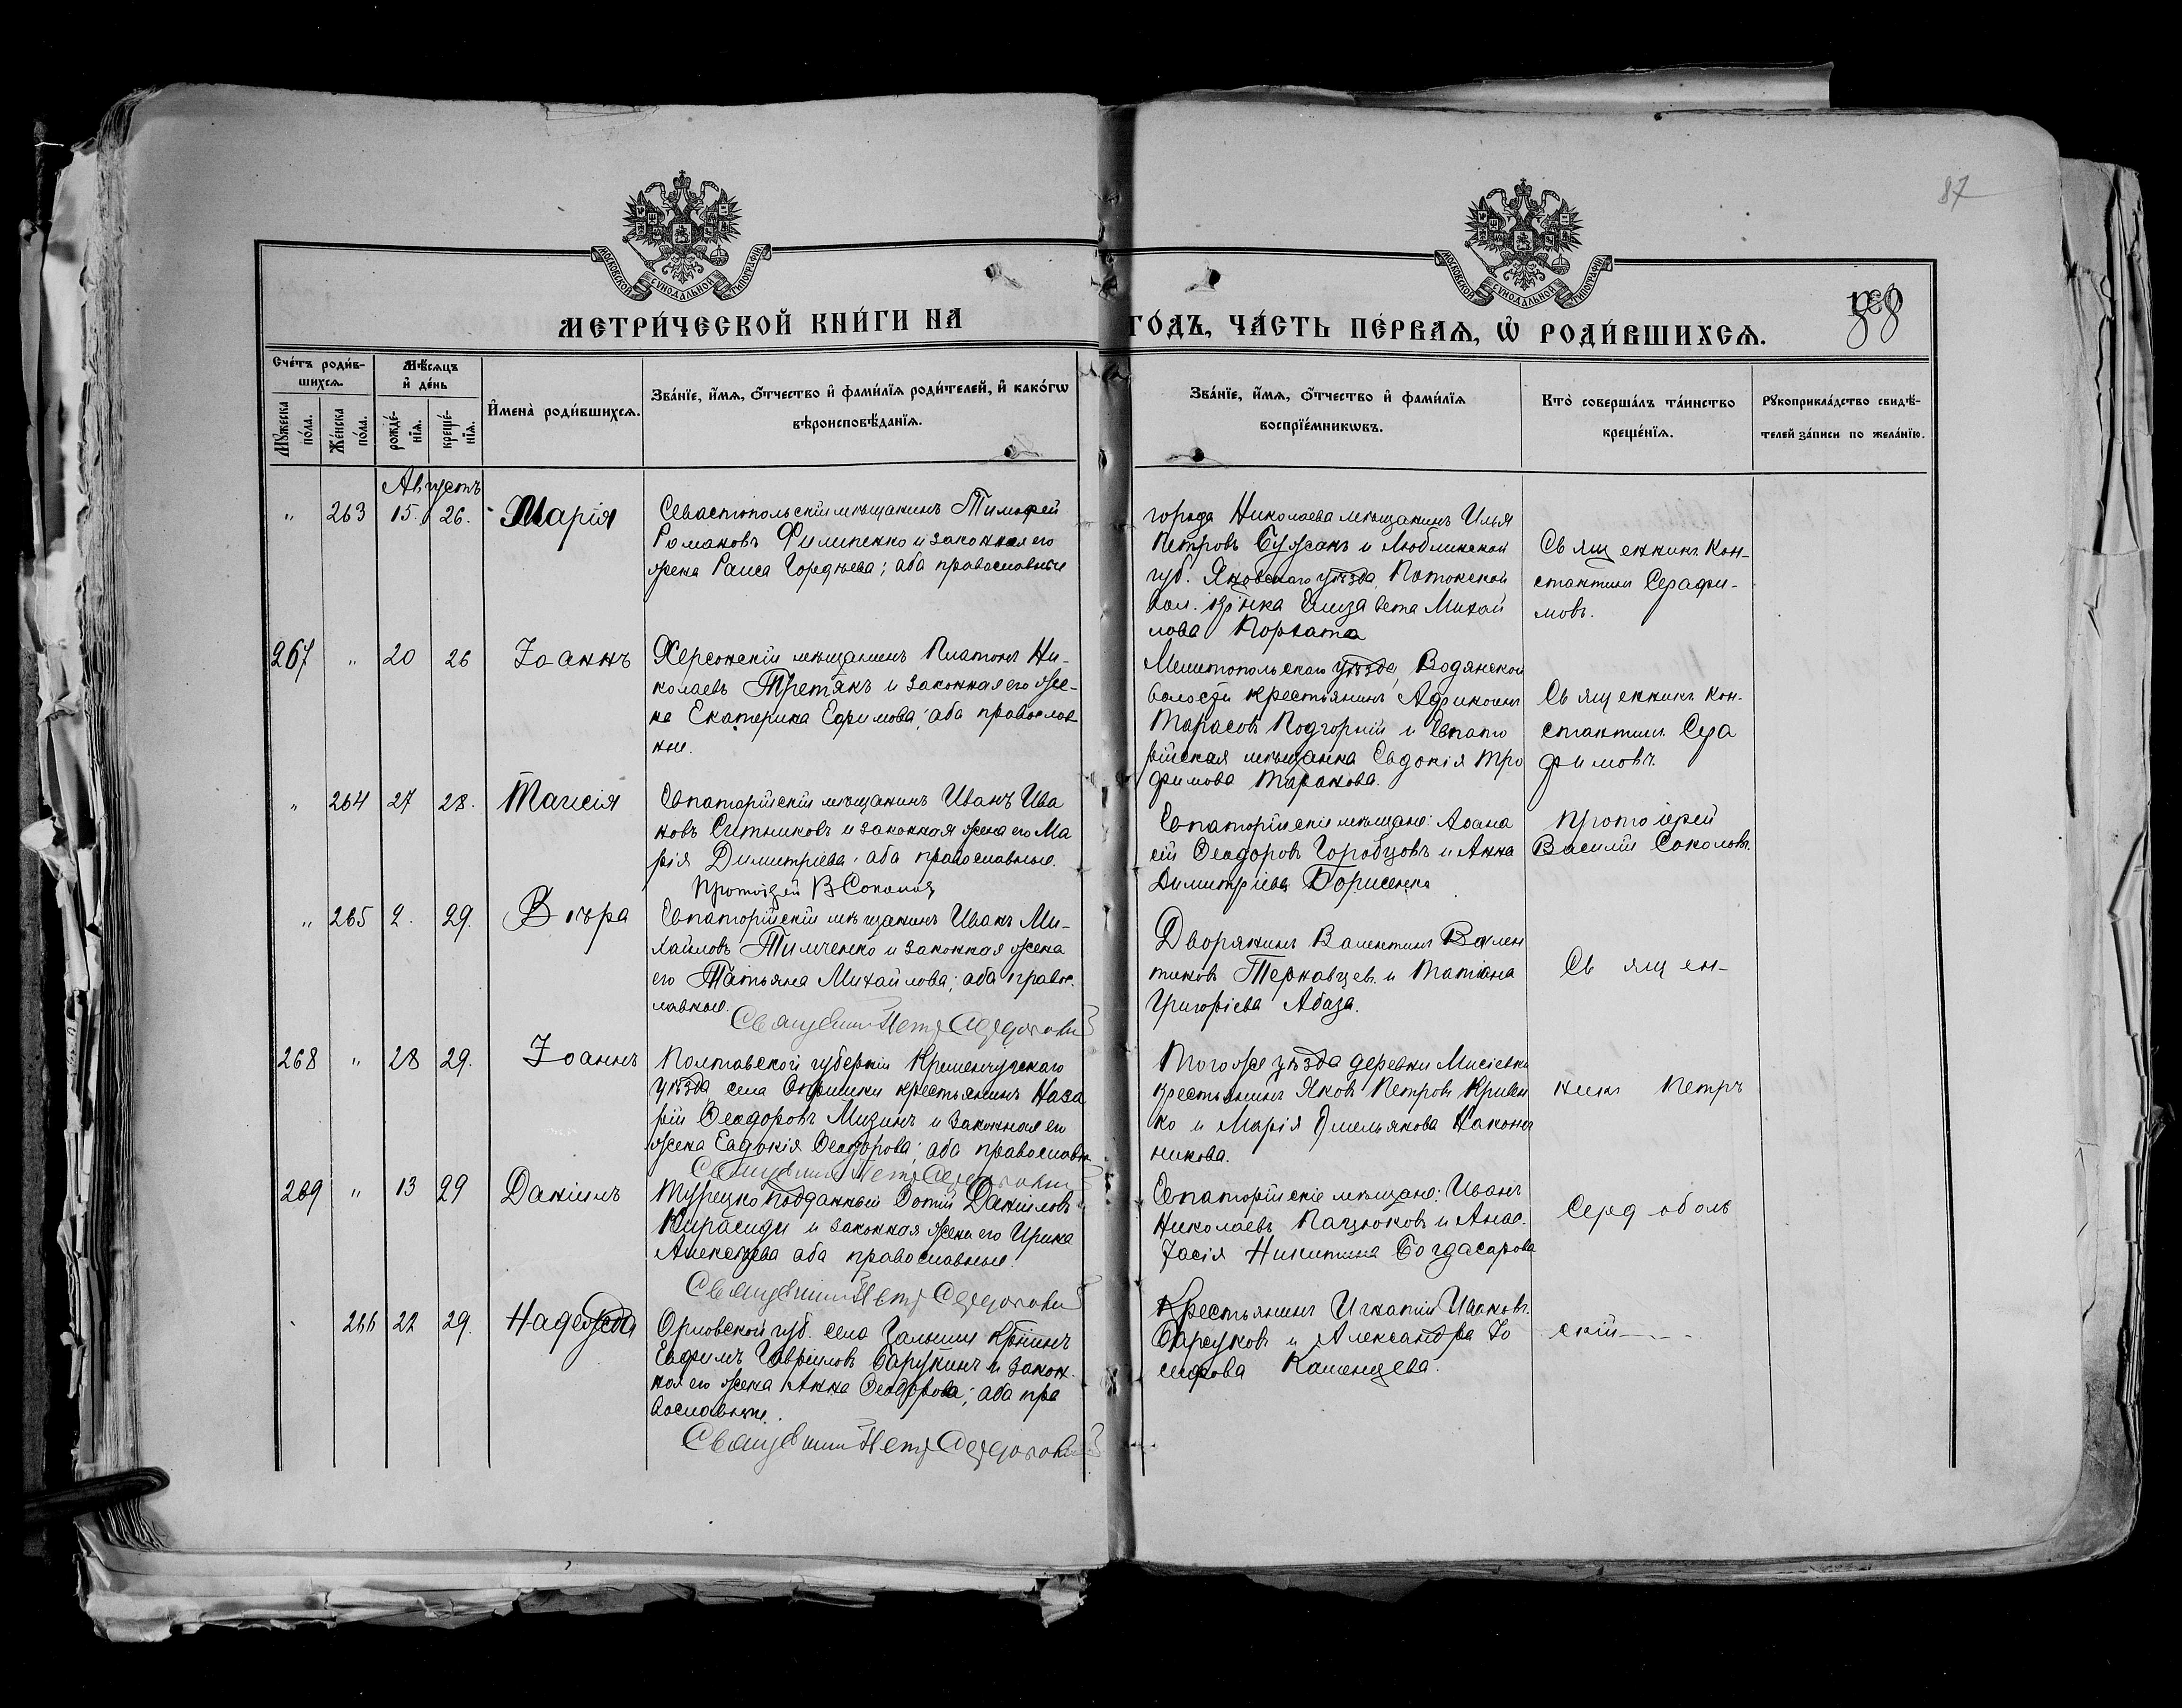 87
МОСКОВСКОЙ СѴНОДАЛЬНОЙ ТИПОГРАФІИ
МОСКОВСКОЙ СѴНОДАЛЬНОЙ ТИПОГРАФІИ
МЕТРИ́ЧЕСКОЙ КНИ́ГИ НА
ГО́ДЪ, ЧА́СТЬ ПЕ́РВАѦ, Ѡ҆ РОДИ́ВШИХСѦ.
88
Сче́тъ роди́в-
шихсѧ.
Мѣ́сѧцъ
и҆ де́нь
Мꙋ́жеска
по́ла.
Же́нска
по́ла.
рожде́-
нїѧ.
креще́-
нїѧ.
И҆мена̀ роди́вшихсѧ.
Зва́нїе, и҆́мѧ, ѻ҆́тчество и҆ фами́лїѧ роди́телей, и҆ како́гѡ
вѣроисповѣ́данїѧ.
Зва́нїе, и҆́мѧ, ѻ҆́тчество и҆ фами́лїѧ
воспрїе́мникѡвъ.
Кто̀ соверша́лъ та́инство
креще́нїѧ.
Рꙋкоприкла́дство свидѣ́-
телей за́писи по жела́нїю.
Августъ
" 263 15. 26. Марія
Севастопольскій мѣщанинъ Тимофей
Романовъ Филипенко и законная его
жена Раиса Гордѣева; оба православные
города Николаева мѣщанинъ Илья
Петровъ и Люблинской
губ. Яновскаго уѣзда, Потокской
вол. Елизавета Михай
лова
Священникъ Кон-
стантинъ Серафи-
мовъ.
267 " 20 26 Іоаннъ
Херсонскій мѣщанинъ Платонъ Ни-
колаевъ Третякъ и законная его же-
на Екатерина Ефимова; оба православ-
ные.
Мелитопольскаго уѣзда, Водянской
волости крестьянинъ
Тарасовъ Подгорный и Евпато
рійская мѣщанка Евдокія Тро
фимова Таракова.
Священникъ Кон-
стантинъ Сера
фимовъ.
" 264 27 28. Таисія
Евпаторійскій мѣщанинъ Иванъ Ива
новъ Ситниковъ и законная жена его Ма
рія Димитріева; оба православные.
Протоіерей В Соколовъ
Евпаторійскіе мѣщане: Аѳана
сій Ѳеодоровъ Горобцовъ и Анна
Димитріева Борисенко
Протоіерей
Василій Соколовъ.
" 265 2. 29. Вѣра
Евпаторійскій мѣщанинъ Иванъ Ми-
хайловъ Тимченко и законная жена
его Татьяна Михайлова; оба правос-
лавные.
Священникъ Петръ Сердобольскій
Дворянинъ Валентинъ Вален
тиновъ Терновцев. и Татіана
Григоріева Абаза.
Священ-
268 " 28 29. Іоаннъ
Полтавской губерніи Кременчугскаго
уѣзда села Опришки крестьянинъ Наза
рій Ѳеодоровъ Мизинъ и законная его
жена Евдокія Ѳеодорова; оба православн
Священникъ Петръ Сердобольскій
Того же уѣзда деревни
крестьянинъ Яковъ Петровъ Кривен
ко и Марія Емельянова Наконеч
никова.
никъ Петръ
269 " 13 29 Даніилъ
Турецко подданный Фотій Даніиловъ
Кирасиди и законная жена его Ирина
Алексѣева оба православные.
Священникъ Петръ Сердобольскій
Евпаторійскіе мѣщане: Иванъ
Николаевъ Пацюковъ и Анас-
тасія Никитина Богдасарова
Сердоболь
266 22 29. Надежда
Орловской губ. села Гальчин кр-нинъ
Евфимъ Гавріиловъ Барсукинъ и закон-
ная его жена Анна Ѳеодорова; оба пра
вославные.
Священникъ Петръ Сердобольскій
Крестьянинъ Игнатій Ивановъ
Барсуковъ и Александра Іо
сифова Каменцева.
скій